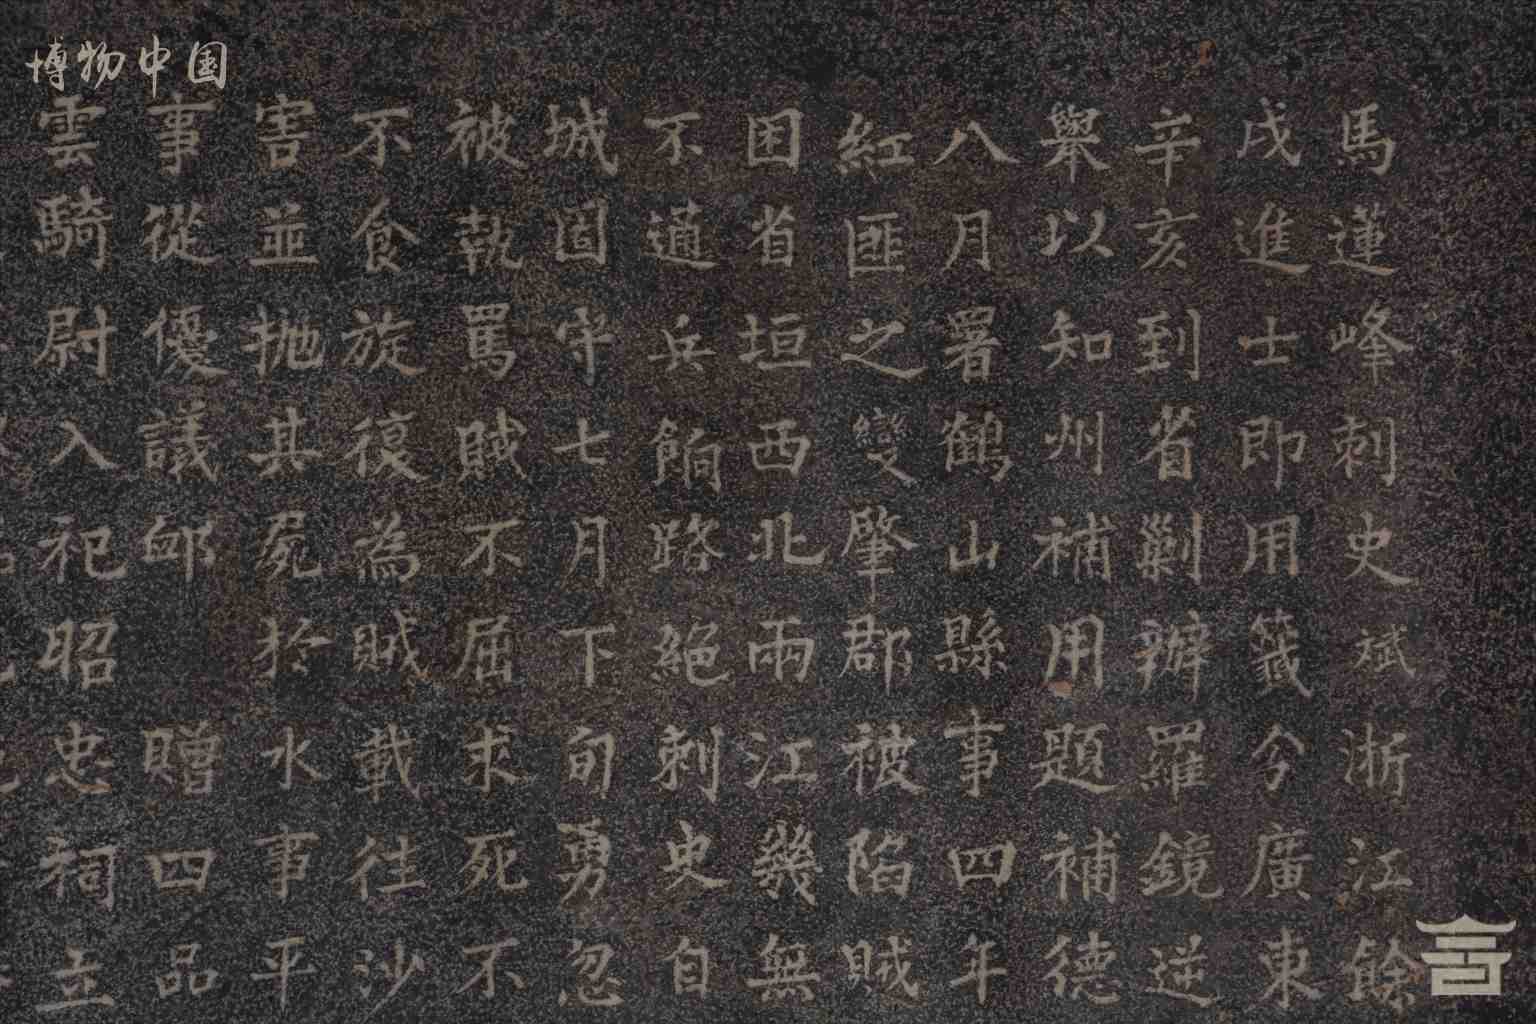 博物中国
馬蓮峰刺史斌浙江餘
戌進士即用籤分廣東
辛亥到省剿辦羅鏡逆
舉以知州補用題補德
八月署鶴山縣事四年
紅匪之變肇郡被陷賊
困省垣西北兩江幾無
不通兵餉路絕刺史自
城固守七月下旬勇忽
被執罵賊不屈求死不
不食旋復為賊載往沙
害並拋其屍於水事平
事從優議卹 贈四品
雲騎尉入祀昭忠祠立
言